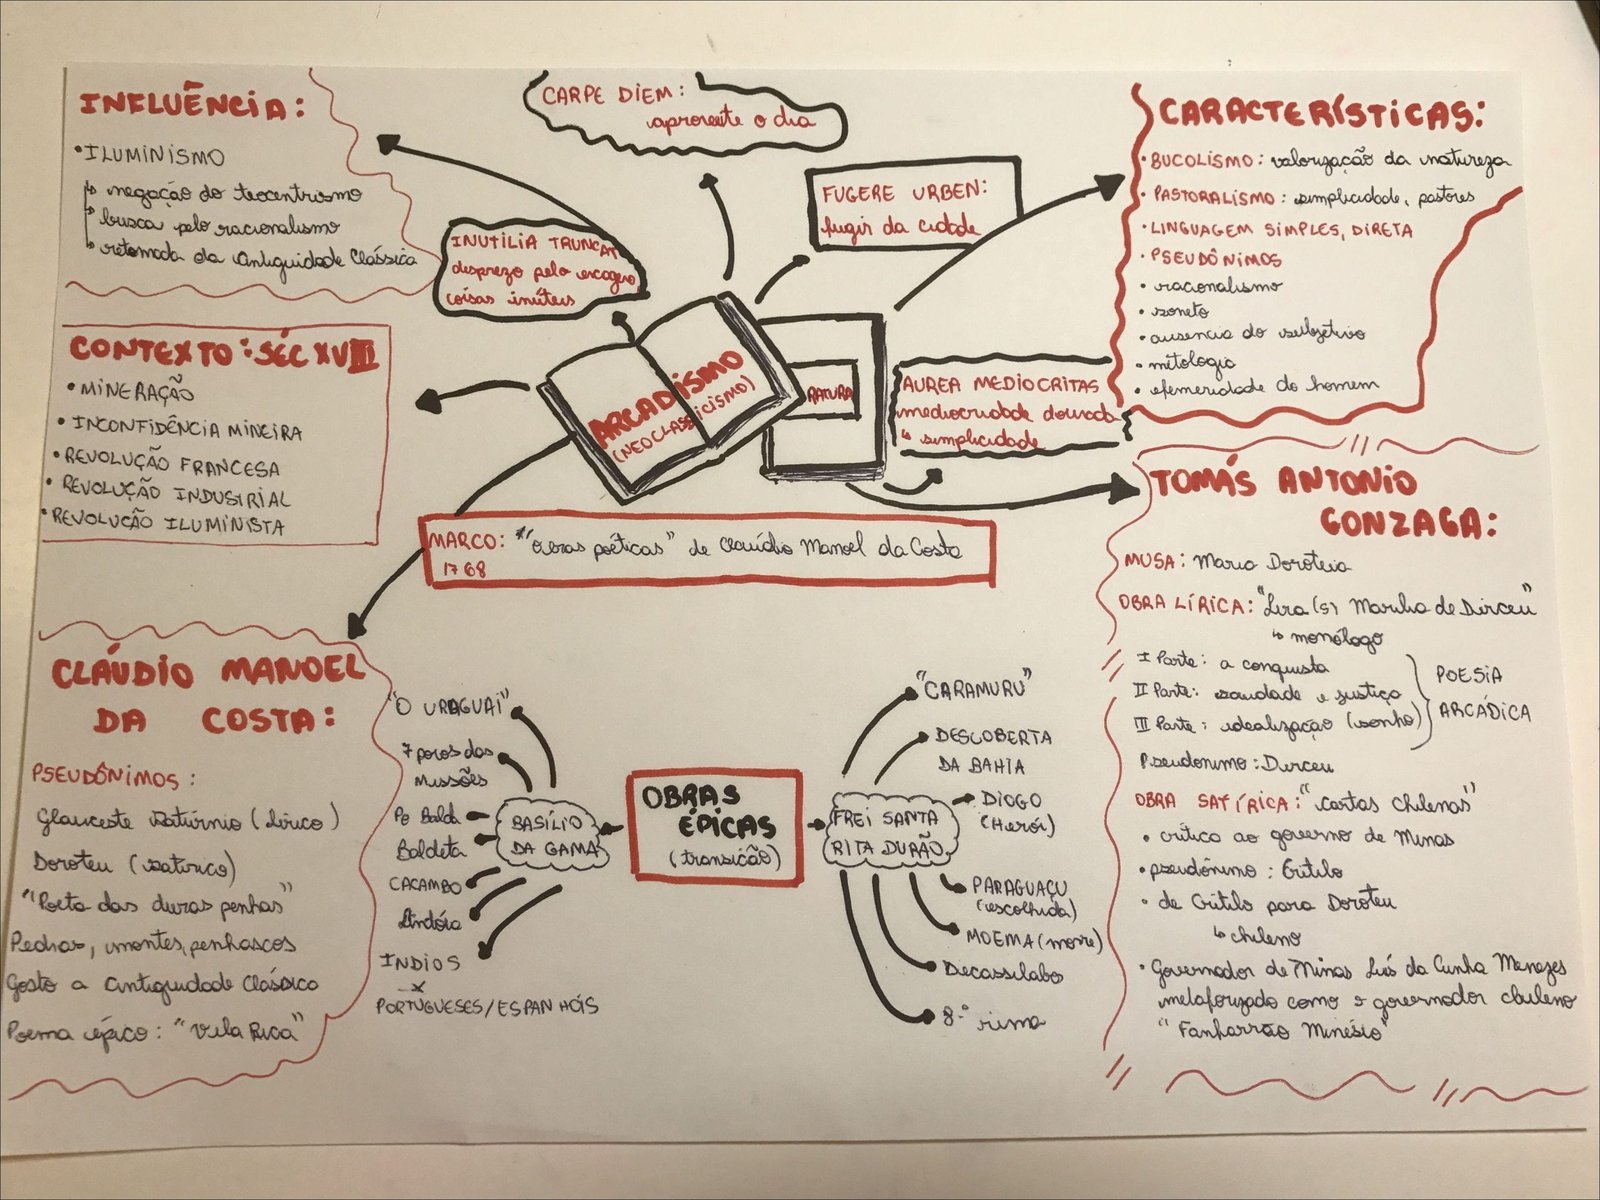 INFLUÊNCIA:
• ILUMINISMO
↳ negação do teocentrismo
↳ busca pelo racionalismo
↳ retomada da Antiguidade Clássica
CARPE DIEM:
aproveite o dia
FUGERE URBEN:
fugir da cidade
INUTILIA TRUNCAT
desprezo pelo exagero
coisas inúteis
CARACTERÍSTICAS:
• BUCOLISMO: valorização da natureza
• PASTORALISMO: simplicidade, pastores
• LINGUAGEM SIMPLES, DIRETA
• PSEUDÔNIMOS
• racionalismo
• soneto
• ausencia do subjetivo
• mitologia
• efemeridade do homem
CONTEXTO: SÉC XVIII
• MINERAÇÃO
• INCONFIDÊNCIA MINEIRA
• REVOLUÇÃO FRANCESA
• REVOLUÇÃO INDUSTRIAL
• REVOLUÇÃO ILUMINISTA
ARCADISMO
(NEOCLASSICISMO)
RATURA
AUREA MEDIOCRITAS
mediocridade dourada
↳ simplicidade
MARCO: "Obras poéticas" de Claúdio Manoel da Costa
1768
TOMÁS ANTONIO
GONZAGA:
MUSA: Maria Doroteia
OBRA LÍRICA: "Lira(s) Marília de Dirceu"
↳ monólogo
I Parte: a conquista
II Parte: saudade e justiça
III Parte: idealização (sonho)
POESIA
ARCÁDICA
Pseudonimo: Dirceu
OBRA SATÍRICA: "Cartas Chilenas"
• crítica ao governo de Minas
• pseudônimo: Critilo
• de Critilo para Doroteu
↳ chileno
• Governador de Minas Luís da Cunha Menezes
metaforizado como o governador chileno
"Fanharrão Minésio"
CLÁUDIO MANOEL
DA COSTA:
PSEUDÔNIMOS:
Glauceste Saturnio (Lírico)
Doroteu (satírico)
"Poeta das duras penhas"
Pedras, montes, penhascos
Gosto a Antiguidade Clássica
Poema épico: "Vila Rica"
OBRAS
ÉPICAS
(transição)
BASÍLIO
DA GAMA
"O URAGUAI"
7 povos das
Missões
Pe Balda
Baldeta
CACAMBO
Lindóia
INDIOS
x
PORTUGUESES/ESPANHÓIS
FREI SANTA
RITA DURÃO
"CARAMURU"
DESCOBERTA
DA BAHIA
DIOGO
(Herói)
PARAGUAÇU
(escolhida)
MOEMA (morre)
Decassilabo
8.ª rima